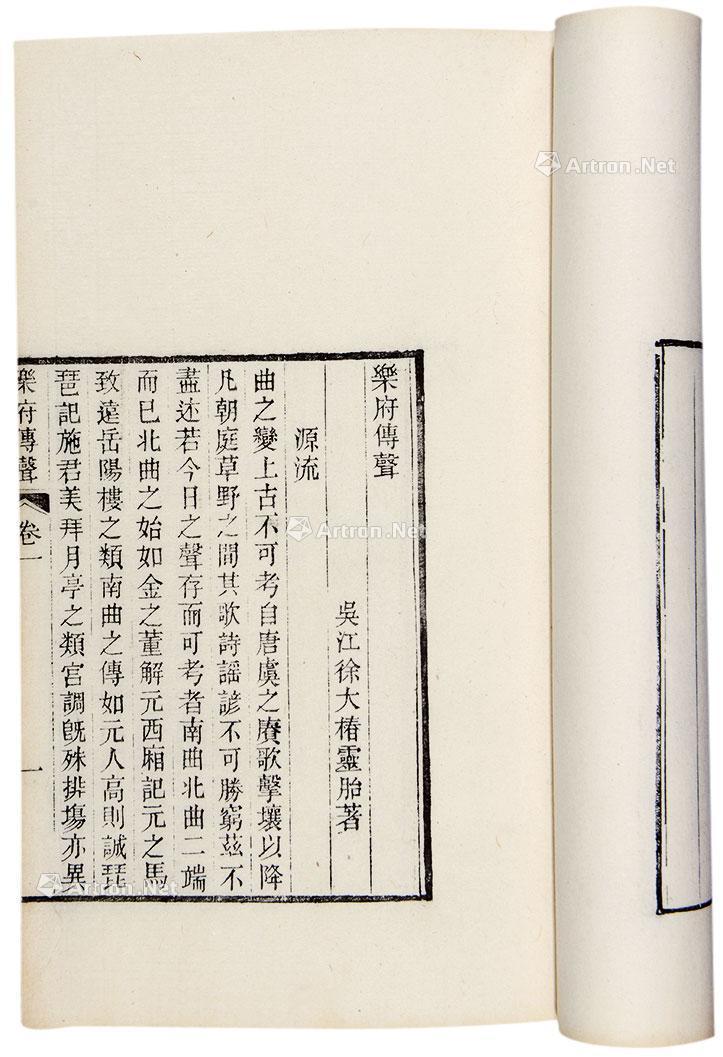 樂府傳聲
吳江徐大椿靈胎著
源流
曲之變上古不可考自唐虞之賡歌擊壤以降
凡朝庭草野之間其歌詩謠諺不可勝窮茲不
盡述若今日之聲存而可考者南曲北曲二端
而已北曲之始如金之董解元西廂記元之馬
致遠岳陽樓之類南曲之傳如元人高則誠琵
琶記施君美拜月亭之類宮調旣殊排塲亦異
樂府傳聲 卷一 一
Artron.Net
Artron.Net
Artron.Net
Artron.Net